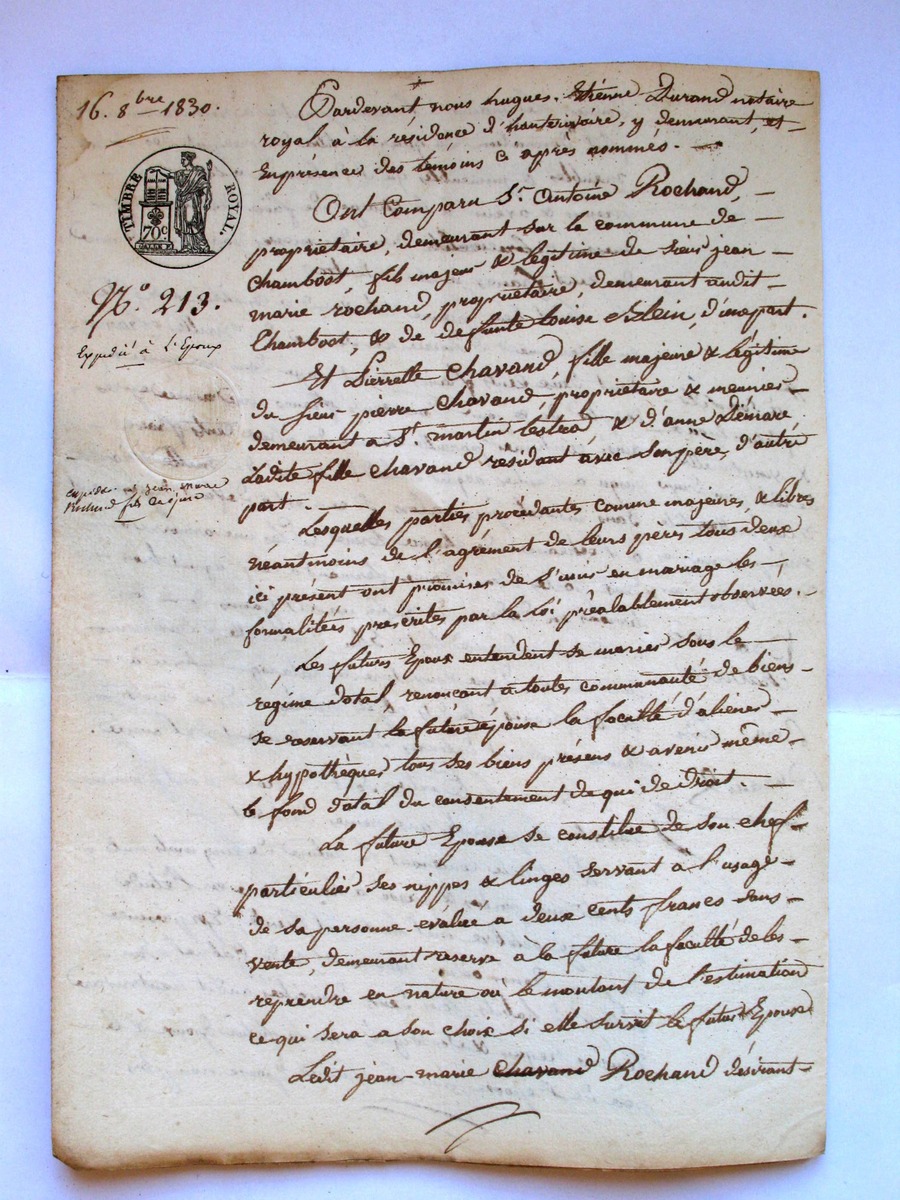 16. 8bre 1830.
TIMBRE ROYAL.
70c
No. 213.
Expédié à l'Epoux
Pardevant nous hugues Etienne Durand notaire
royal à la résidence d'hauterivoire, y demeurant, et
En présence des témoins ci après nommés.
Ont Comparu Sr. Antoine Rochand,
propriétaire, demeurant sur la commune de
Chambost, fils majeur & légitime de Sieur jean
marie rochand, propriétaire, demeurant audit
Chambost, & de defunte Louise, d'une part.
Et Pierrette Chavand, fille majeure & légitime
du Sieur pierre Chavand, propriétaire & meunier
demeurant a St. martin lestra, & d'anne Démare
Ladite fille Chavand residant avec son père, d'autre
part.
Lesquelles parties procédantes comme majeures, & libres
néantmoins de l'agrément de leurs pères tous deux
ici présent ont promises de s'unir en mariage les
formalités prescrites par la loi préalablement observées.
Les futurs Epoux entendent se marier sous le
régime dotal, renonçant a toutes communauté de biens
se reservant la future épouse la faculté d'aliener
& hypothèquer tous ses biens présens & avenir même
le fond dotal du consentement de qui de Droit.
La future Epouse se constitue de son chef
particulier ses nippes & linges servant à l'usage
de sa personne évalué a deux cents francs sans
vente, demeurant reservé à la future la faculté de les
reprendre en nature ou le montant de l'estimation
ce qui sera a son choix si elle survit le futur Epoux
Ledit jean-marie chavand Rochand désirant